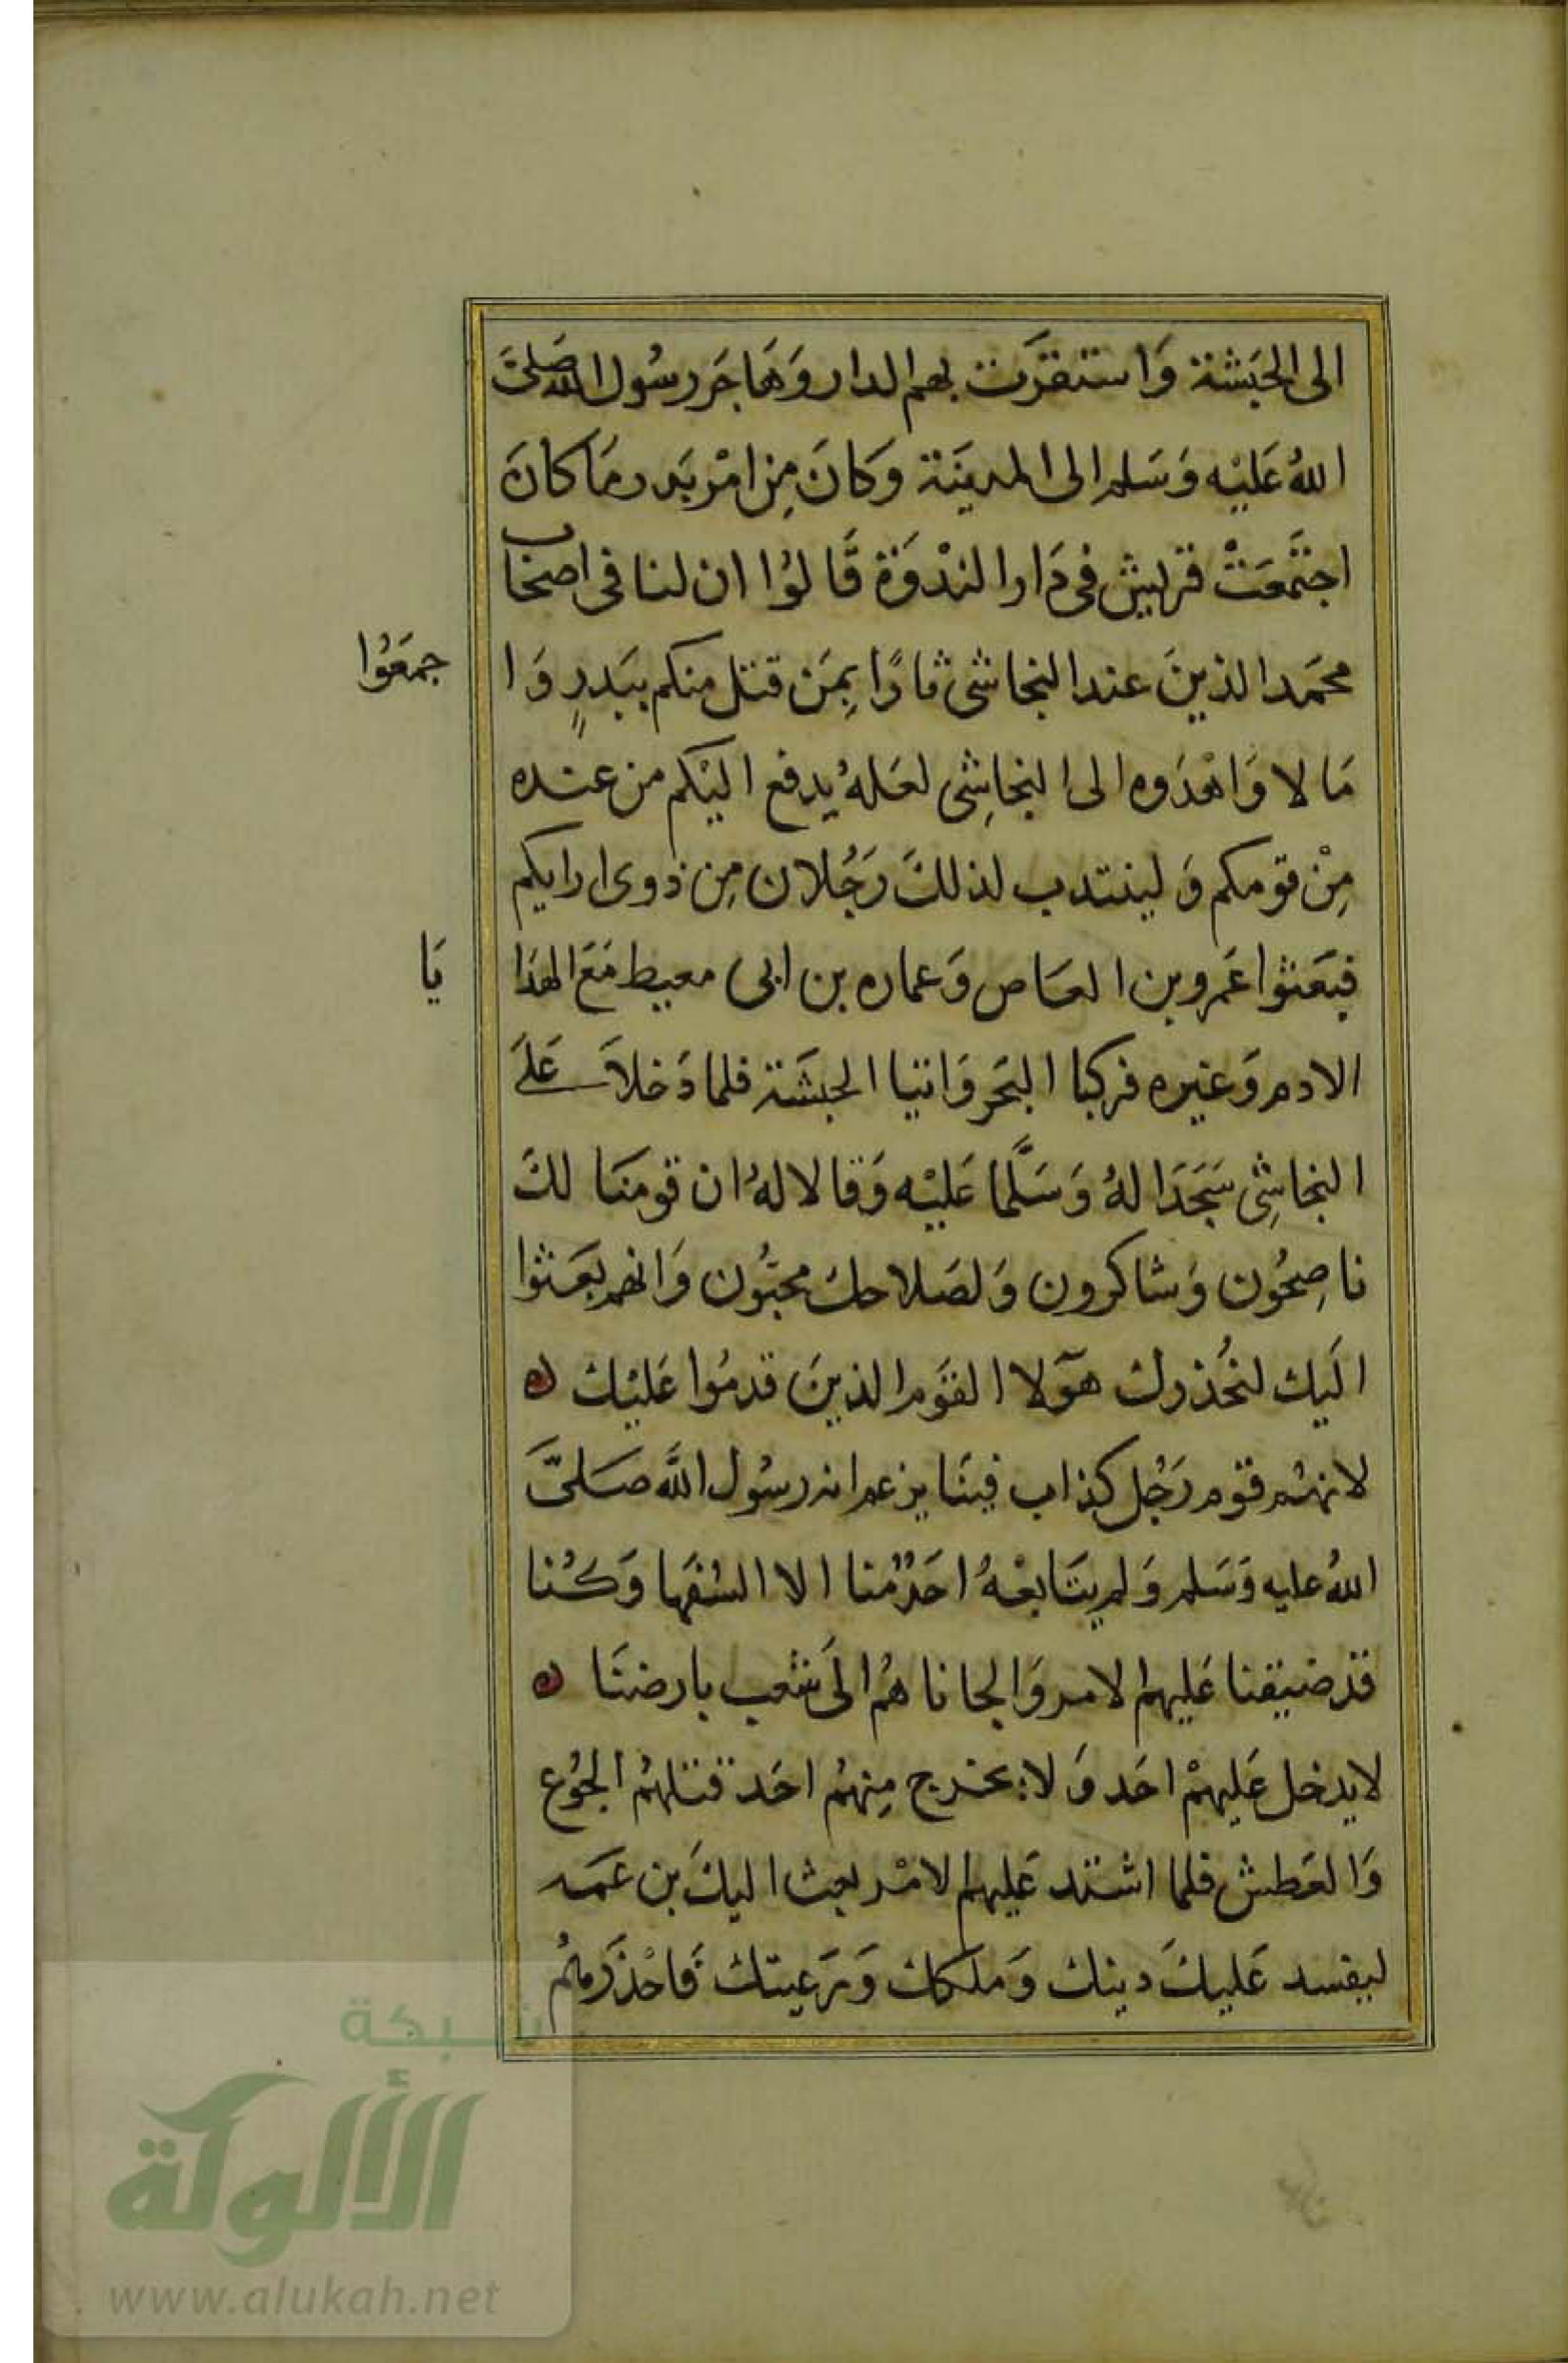 الى الحَبَشة وَاستقرَت بهم الدار وَهَاجَر رسُول الله صَلىَّ
اللهُ عَليْه وَسَلم الى المدينَة وَكانَ مِن امْر بَدر مَا كانَ
اجتَمعَتْ قريش فى دَار الندْوَة قَالوُا ان لنا فى اصحَاب
محَمد الذينَ عند النجاشى ثارًا بِمَن قتل منكم ببَدرٍ وَا جمعَوُا
مَالا وَاهْدَوه الى النجاشِى لعَلهُ يدفع اليْكم من عنده
مِنْ قومكم وَلينتدب لذلكَ رَجُلان مِن ذوى ارايكم
فبعَثوا عَمرو بن العَاص وَعماره بن ابى معيط مَعَ الهدَا يَا
الادم وَغيره فركبا البَحر وَاتيا الحبشَة فلما دَخلاَ عَلىَ
النجاشِى سَجَدَا لهُ وَسَلَّما عَليْه وَقالا لهُ ان قومنَا لكَ
ناصِحُون وَشاكرون وَلصَلاحك محبّوُن وَانهم بعَثوا
اليَك لنحُذرك هوٓلا القوَم الذينَ قدمُوا عَليْك ه
لانهُم قوْم رَجُل كذاب فينَا يزعم انه رسُول اللَّه صَلىَّ
اللهُ عليه وَسَلم وَلم يتَابعْهُ احَدٌ منا الا السُفهَا وَكُنا
قدْ ضيقنا عَليهم الامر وَالجانا هُم الىَ شعب بارضنَا ه
لايدخل عَليهمْ احَد وَلا يخرج مِنهُم احَد قتلهُم الجوُع
وَالعَطش فلما اشتد عَليهم الامْر بعث اليكَ بن عَمه
ليفسد عَليكَ دينك وَملكك وَرَعيتك فَاحْذَرهُم
شبكة
الألوكة
www.alukah.net